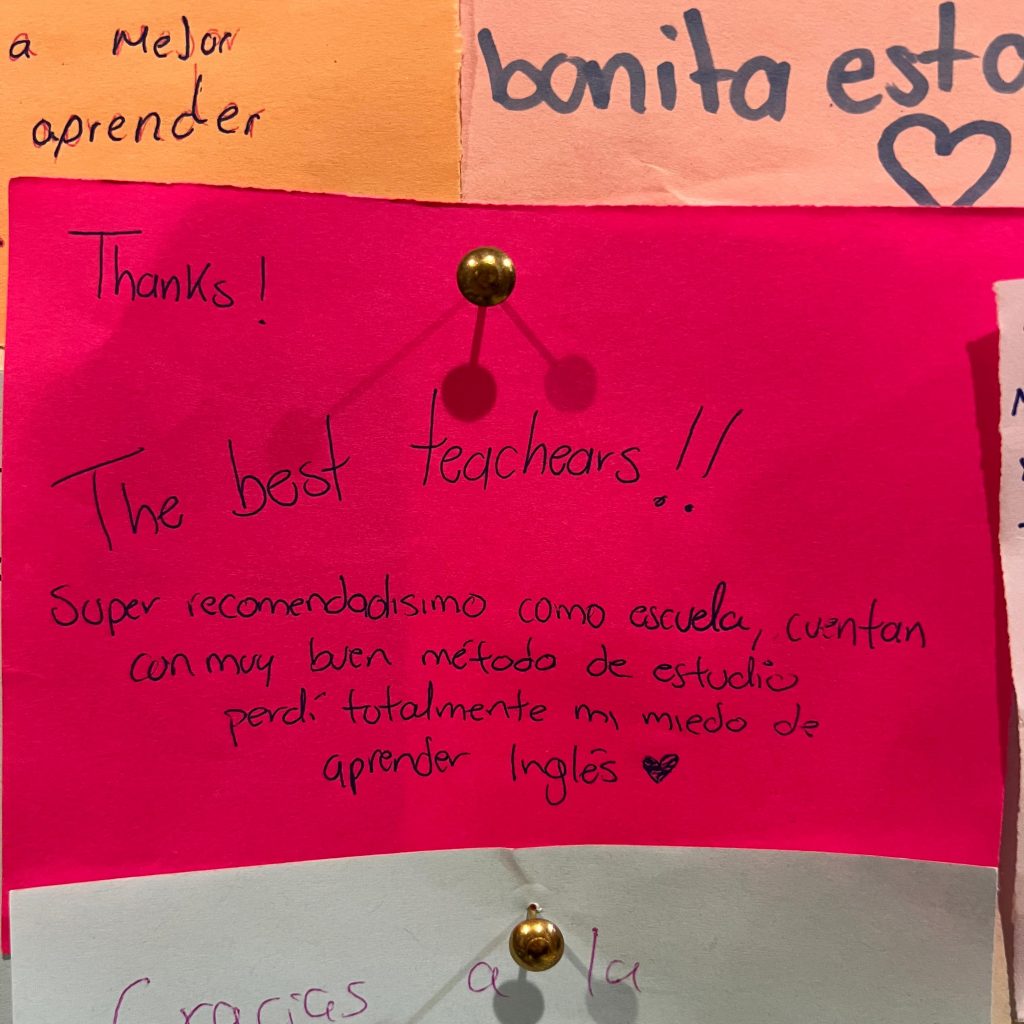 a mejor
aprender
bonita esta
Thanks!
The best teachears!!
Super recomendadisimo como escuela, cuentan
con muy buen método de estudio
perdí totalmente mi miedo de
aprender Inglés
Gracias a la